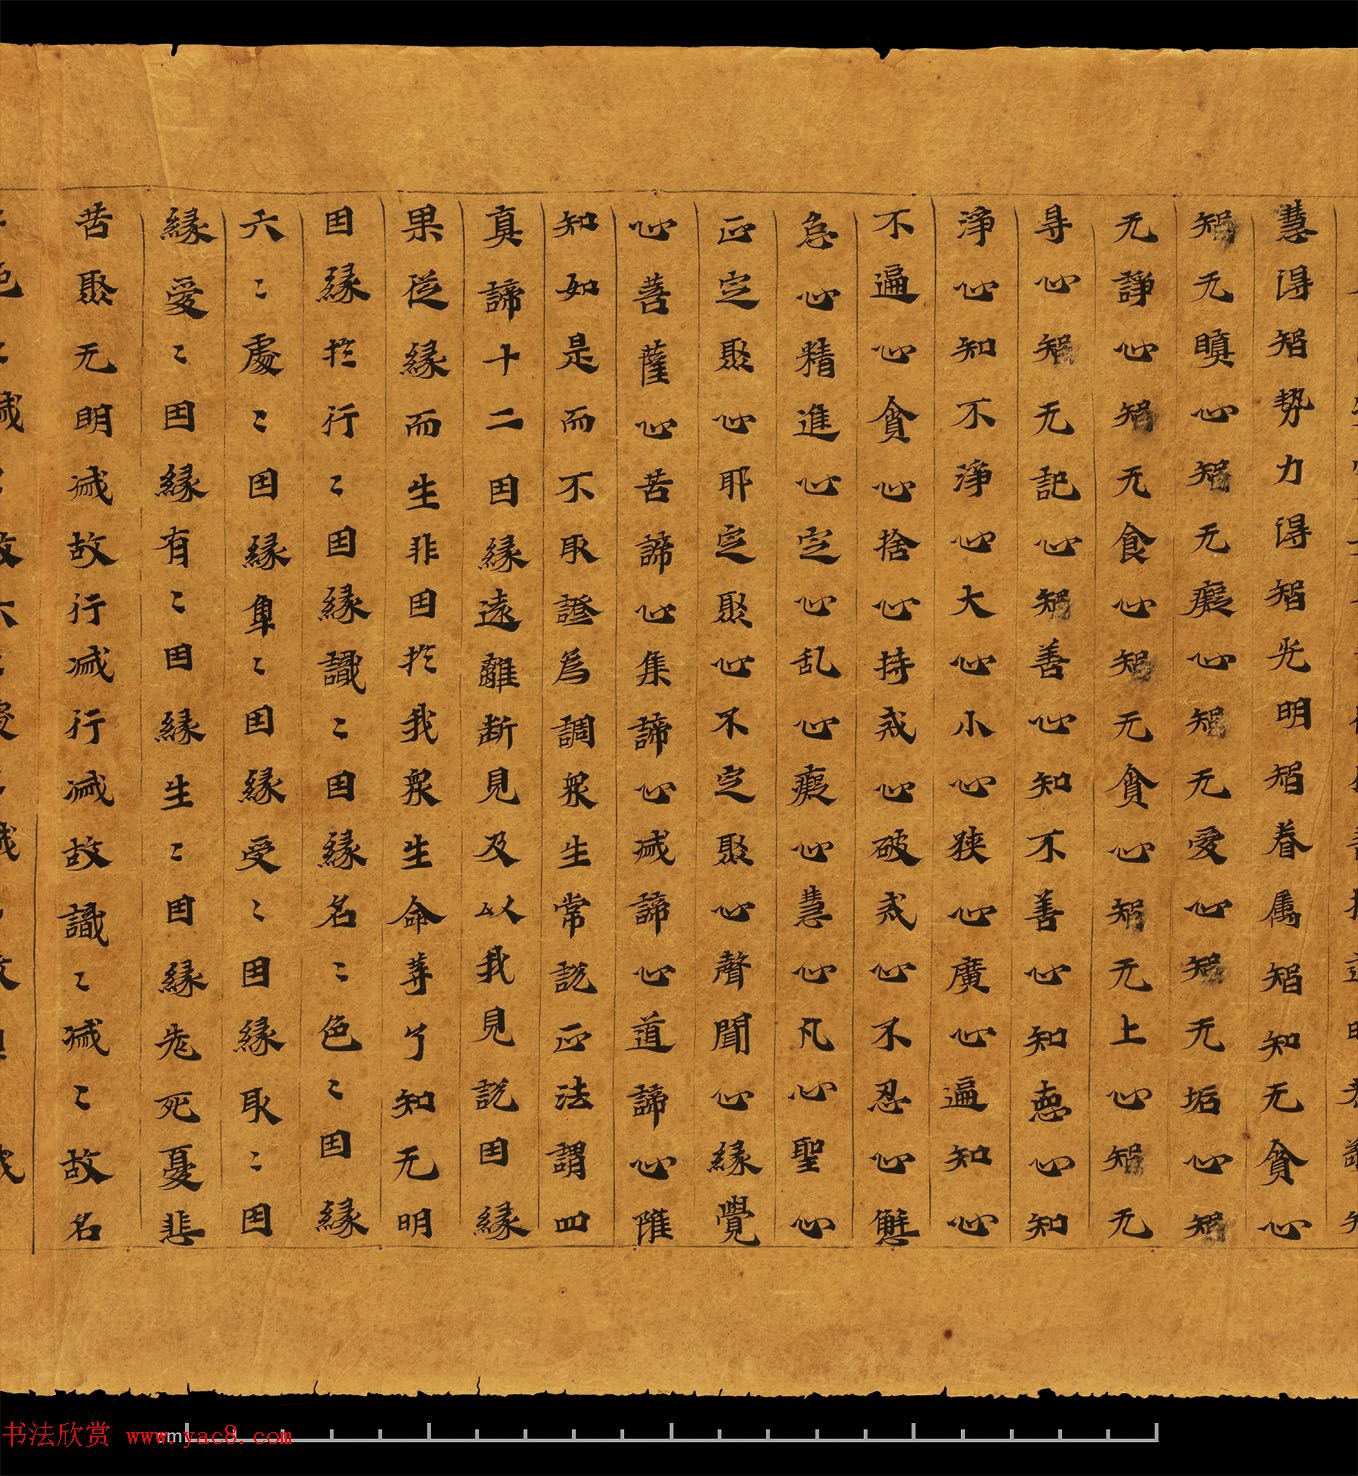 慧得智勢力得智光明智眷属智知无貪心
智无瞋心智无癡心智无愛心智无垢心智
无諍心智无食心智无貪心智无上心智无
㝵心智无記心智善心知不善心知惪心知
淨心知不淨心大心小心狹心廣心遍知心
不遍心貪心捨心持戒心破戒心不忍心懈
怠心精進心定心乱心癡心慧心凡心聖心
正定聚心耶定聚心不定聚心聲聞心緣覺
心菩薩心苦諦心集諦心滅諦心道諦心隨
知如是而不取證為調衆生常說正法謂四
真諦十二因緣遠離断見及以我見説因緣
果從緣而生非因於我衆生命等了知无明
因緣於行〻因緣識〻因緣名〻色〻因緣
六〻處〻因緣觸〻因緣受〻因緣取〻因
緣愛〻因緣有〻因緣生〻因緣老死憂悲
苦聚无明滅故行滅行滅故識〻滅〻故名
书法欣赏 www.yac8.com